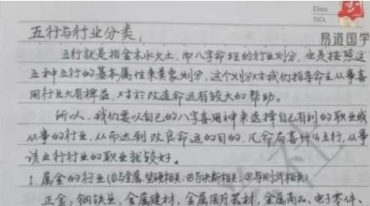 Date
NO.
易道国学
五行与行业分类:
五行就是指金木水火土,而八字命理的行业划分,也是按照这
五种五行的基本属性来类象划分,这个划分对我们指导命主从事喜
用行业大有裨益,对于改造命运有较大的帮助。
所以,我们要以自己的八字喜用神来选择自己有利的职业或
从事的行业,从而达到改良命运的目的,凡命局喜什么五行,从事
该五行行业的职业就较好。
1.属金的行业(①与金属,坚硬相关,②与决断相关,③与刚武相关)
正金:钢铁业,金属建材,金属医疗器材,金属商品,电子零件、